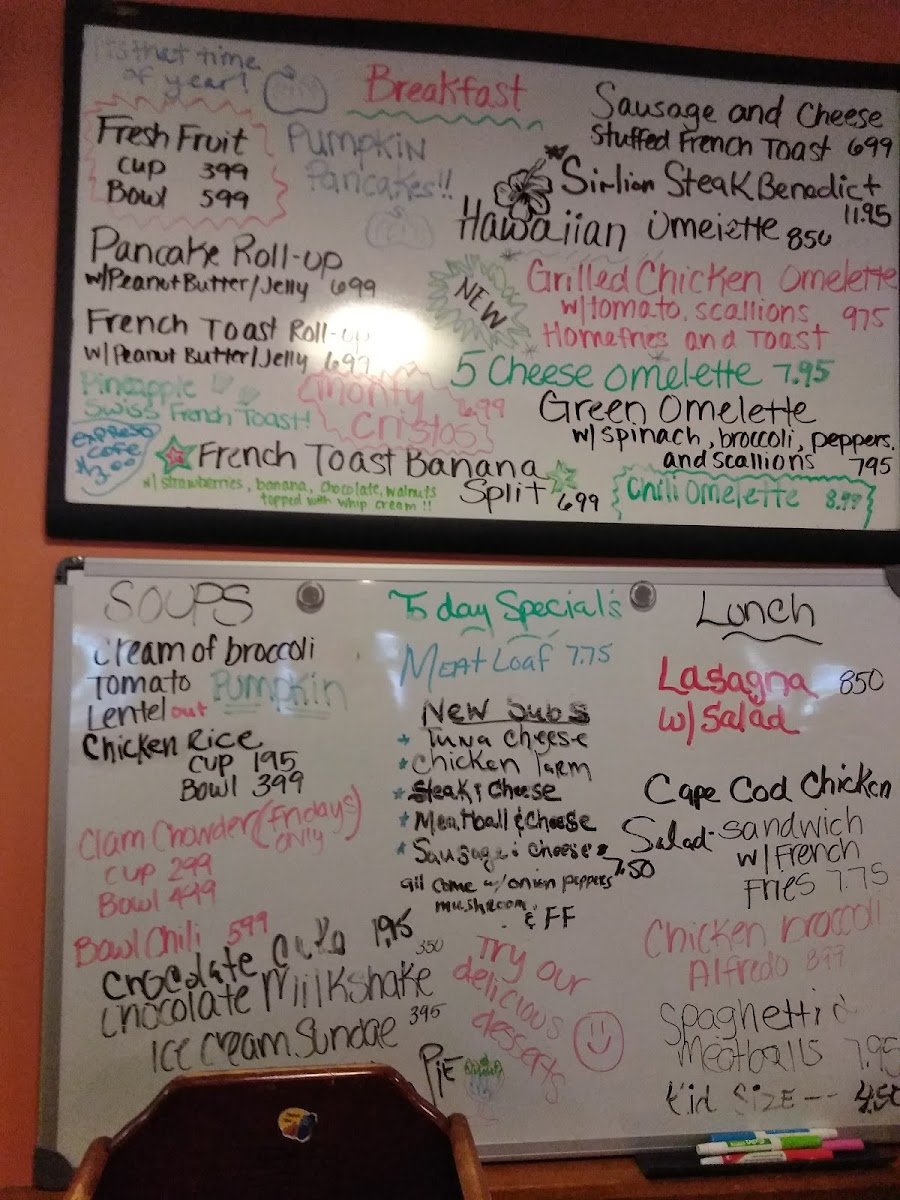 It's that time
of year!
Breakfast
Fresh Fruit
cup 399
Bowl 599
Pumpkin
Pancakes!!
Pancake Roll-up
w/Peanut Butter/Jelly 699
French Toast Roll-up
w/Peanut Butter/Jelly 699
Pineapple
Swiss French Toast!
expresso
cafe
Monty 6.99
Cristos
French Toast Banana
Split 699
w/ strawberries, banana, chocolate, walnuts
topped with whip cream !!
Sausage and Cheese
Stuffed French Toast 699
Sirlion Steak Benedict
11.95
Hawaiian Omelette 850
NEW
Grilled Chicken Omelette
w/tomato, scallions 975
Homefries and Toast
5 Cheese Omelette 7.95
Green Omelette
w/ spinach, broccoli, peppers,
and scallions 795
Chili Omelette 8.99
SOUPS
Cream of broccoli
Tomato Pumpkin
Lentel out
Chicken Rice
cup 195
Bowl 399
Clam Chowder (Fridays
only)
cup 299
Bowl 499
Bowl Chili 599
Chocolate 1.95
Chocolate Milkshake 350
Ice Cream Sundae 395
Pie
Today Special's
Meat Loaf 7.75
New Subs
Tuna Cheese
Chicken Parm
Steak & Cheese
Meatball & Cheese
Sausage & Cheese
7.50
all come w/ onion peppers
mushroom
& FF
Try our
delicious
desserts
Lunch
Lasagna 850
w/ Salad
Cape Cod Chicken
Salad-sandwich
w/ French
Fries 7.75
Chicken broccoli
Alfredo 899
Spaghetti &
Meatballs 7.95
Kid Size -- 4.50